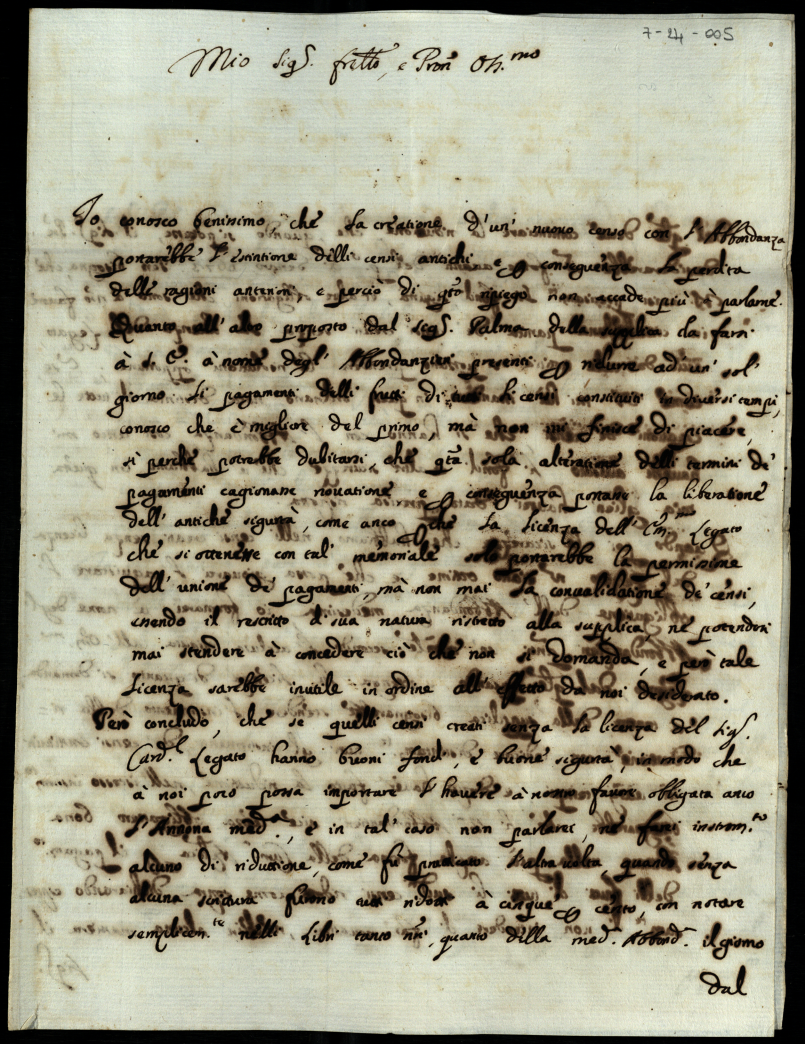 7-24-005
Mio Sigr. fretto, e Pron Oss.mo
Io conosco benissimo, che la creatione d'un nuovo censo con l'Abbondanza
portarebbe l'estintione delli censi antichi e per conseguenza la perdita
delle ragioni anteriori, e perciò di qto ripiego non accade più à parlarne.
Quanto all'altro proposto dal Sigr. Palma della supplica da farsi
à S. E. à nome degl'Abbondanzieri presenti per ridurre ad'un' sol'
giorno li pagamenti delli frutti di tutti li censi constituiti in diversi tempi,
conosco che è migliore del primo, mà non mi finisce di piacere,
sì perche potrebbe dubitarsi, che qta sola alteratione delli termini de'
pagamenti cagionasse novatione e per conseguenza portasse la liberatione
dell'antiche sigurtà, come anco perche la licenza dell'Em.mo Legato
che si ottenesse con tal' memoriale solo portarebbe la permissione
dell'unione de' pagamenti, mà non mai la convalidatione de' censi,
essendo il rescritto di sua natura ristretto alla supplica, ne potendosi
mai stendere à concedere ciò che non si domanda, e però tale
licenza sarebbe inutile in ordine all'effetto da noi desiderato.
Però concludo, che se quelli censi creati senza la licenza del Sigr.
Card.l Legato hanno buoni fondi, e buone sigurtà, in modo che
à noi poco possa importare l'havere à nostro favore obbligata anco
l'Annona med.a, e in tal' caso non parlarsi, ne farsi instrom.to
alcuno di riduttione, come fù praticato l'altra volta, quando senza
alcuna scrittura furono tutti ridotti à cinque per cento, con notare
semplicem.te nelli Libri tanto nri, quanto della med. Abbond. il giorno
dal